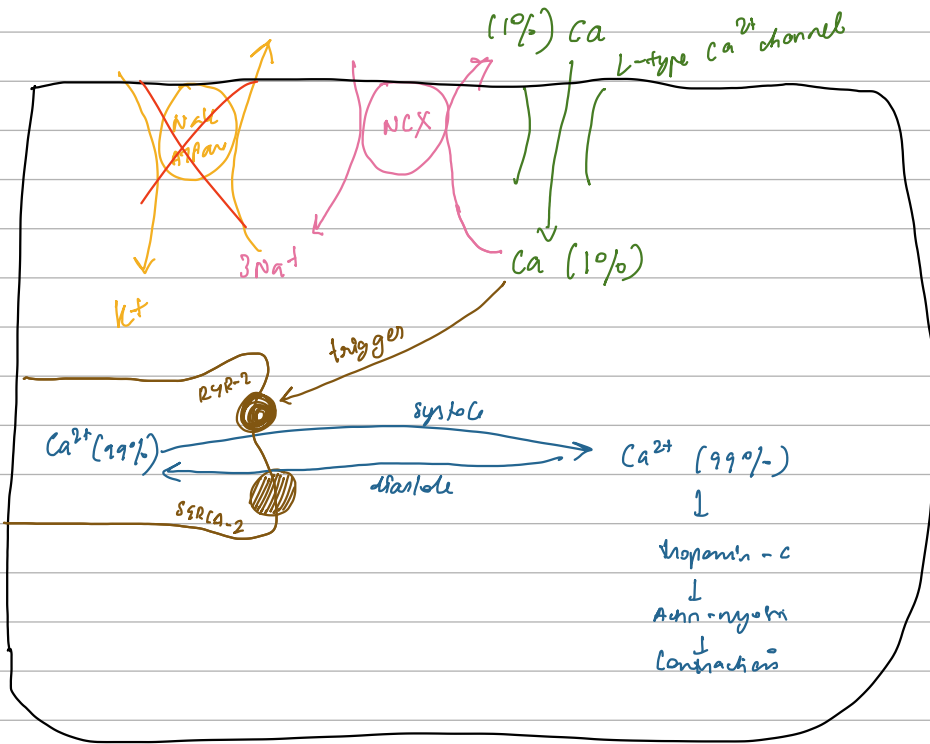 (1%) Ca
L-type Ca²⁺ channel
NaK
ATPase
NCX
3Na⁺
Ca (1%)
K+
trigger
RYR-2
systole
Ca²⁺ (99%)
Ca²⁺ (99%)
diastole
SERCA-2
↓
troponin - c
↓
Actin-myosin
↓
Contractions